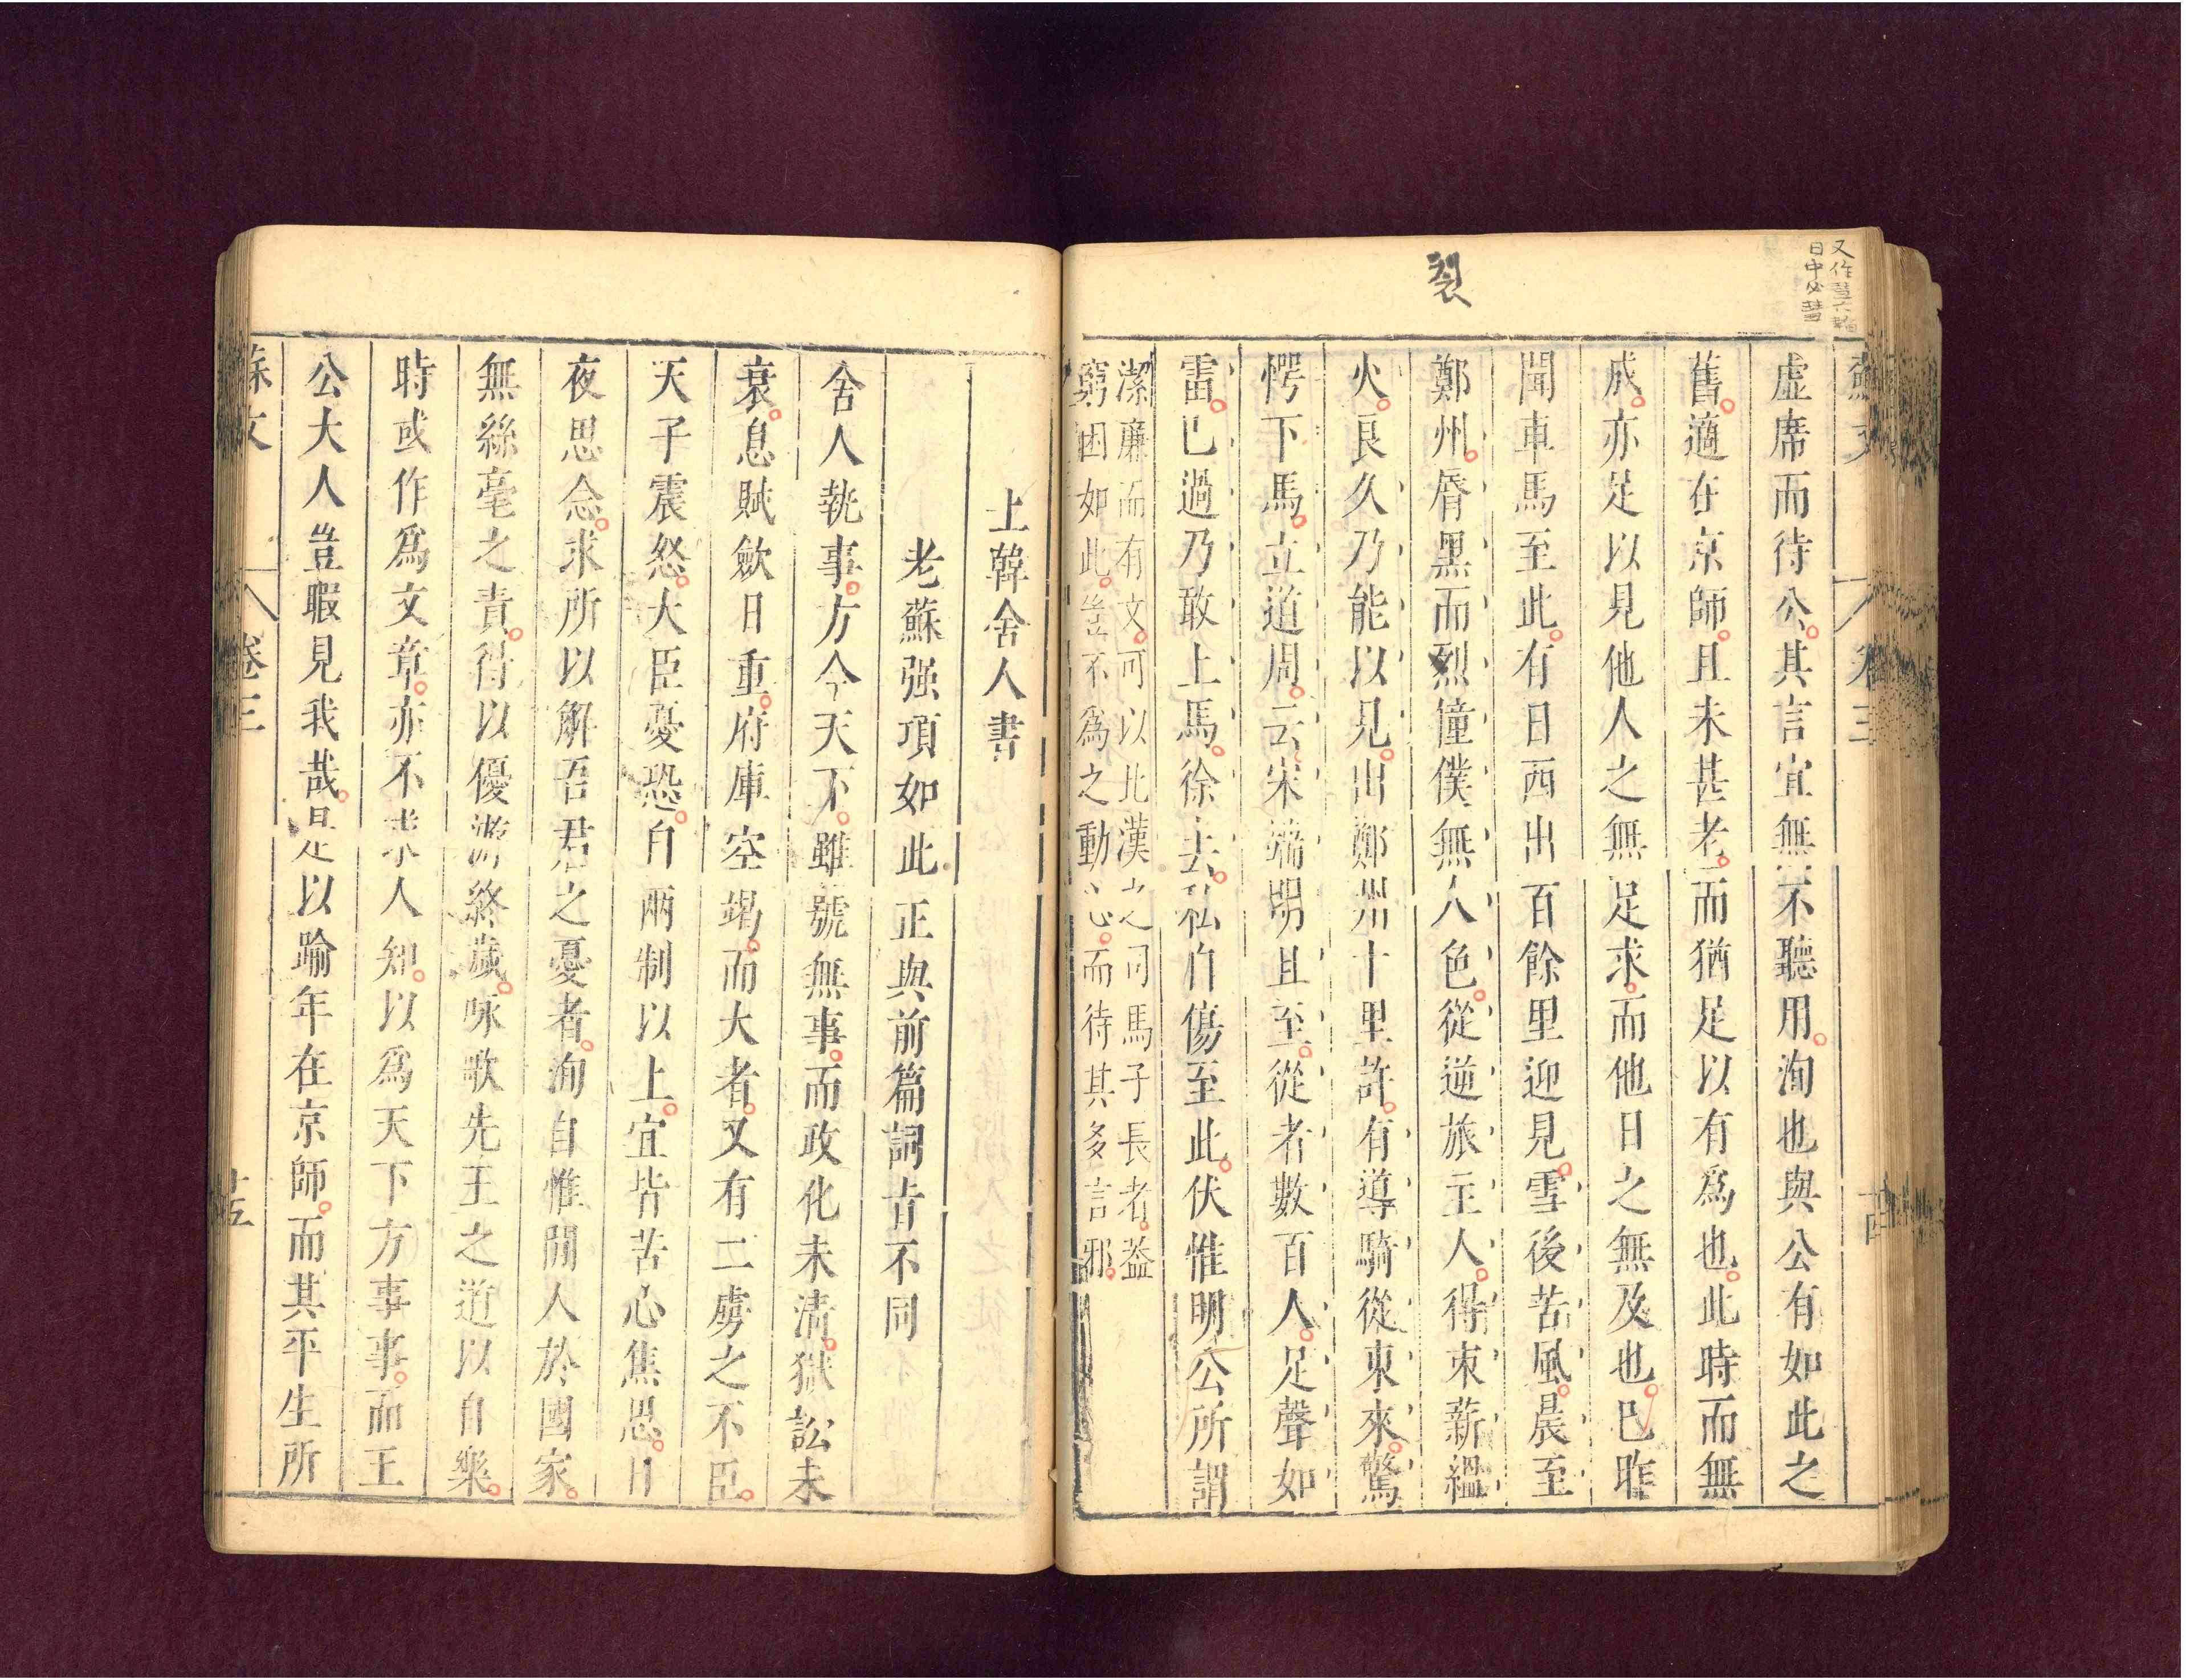 又作
日中必
裂
蘇文
卷三
虛席而待公其言宜無不聽用洵也與公有如此之
舊適在京師且未甚老而猶足以有爲也此時而無
成亦足以見他人之無足求而他日之無及也巳昨
聞車馬至此有日西出百餘里迎見雪後苦風晨至
鄭州脣黑而烈僮僕無人色從逆旅主人得束薪縕
火良久乃能以見出鄭州十里許有導騎從東來驚
愕下馬立道周云宋端明且至從者數百人足聲如
雷巳過乃敢上馬徐去私自傷至此伏惟明公所謂
潔廉而有文可以比漢之司馬子長者蓋
窮困如此豈不爲之動心而待其多言邪
上韓舍人書
老蘇强項如此正與前篇詞旨不同
舍人執事方今天下雖號無事而政化未清獄訟未
衰息賦歛日重府庫空竭而大者又有二虜之不臣
天子震怒大臣憂恐自兩制以上宜皆苦心焦思日
夜思念求所以解吾君之憂者洵自惟閒人於國家
無絲毫之責得以優游終歲咏歌先王之道以自樂
時或作爲文章亦不求人知以爲天下方事事而王
公大人豈暇見我哉是以踰年在京師而其平生所
蘇文
卷三